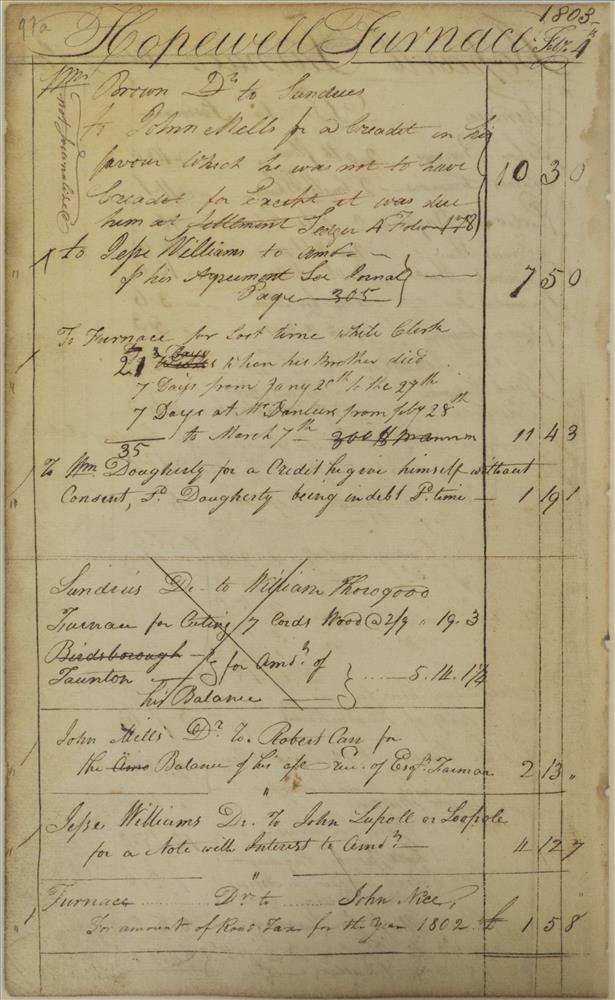 97a
1803
Hopewell Furnace Feby. 4th
Wm. Brown Dr. to Sundries
not Journalised
to John Mells for a Creadet in his
favour which he was not to have
Creadet for Except it was due
him at Settlment Ledger A Folio 178
10 3 0
to Jesse Williams to amt.
of his Agreement See Jornal
Page 305
7 5 0
To Furnace for Lost time while Clerk
21 Days When his Brother died
7 Days from Jany 20th to the 27th
7 Days at Mr. from feby 28th
to March 7th 300 £ Pr annum
11 4 3
35
To Wm. Dougherty for a Credit he gave himself without
Consent, Sd. Dougherty being in debt Sd. time
1 19 1
Sundries Dr. to William Thorogood
Furnace for Cuting 7 Cords Wood @ 2/9 " 19.3
Birdsborough
Taunton for Amot. of
his Balance
5.14.1½
John Mills Dr. To Robert Carr for
the Amo Balance of his a/c of Esqr. 
2 13 "
"
Jesse Williams Dr. To John Lapoll or Loopole
for a Note with Interest to Amot.
4 12 7
"
Furnace Dr to John Nice,
For amount of Road Tax for the Year 1802 £
1 5 8